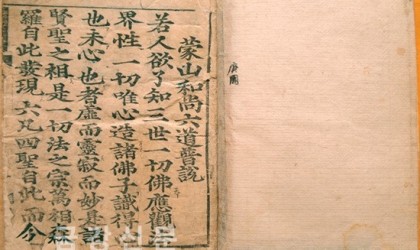 蒙山和尚六道普說
若人欲了知三世一切佛應觀
界性一切唯心造諸佛子識得
也未心也者虛而靈寂而妙是諸
賢聖之祖是一切法之宗萬相森
羅自此發現六凡四聖自此而分
불교신문